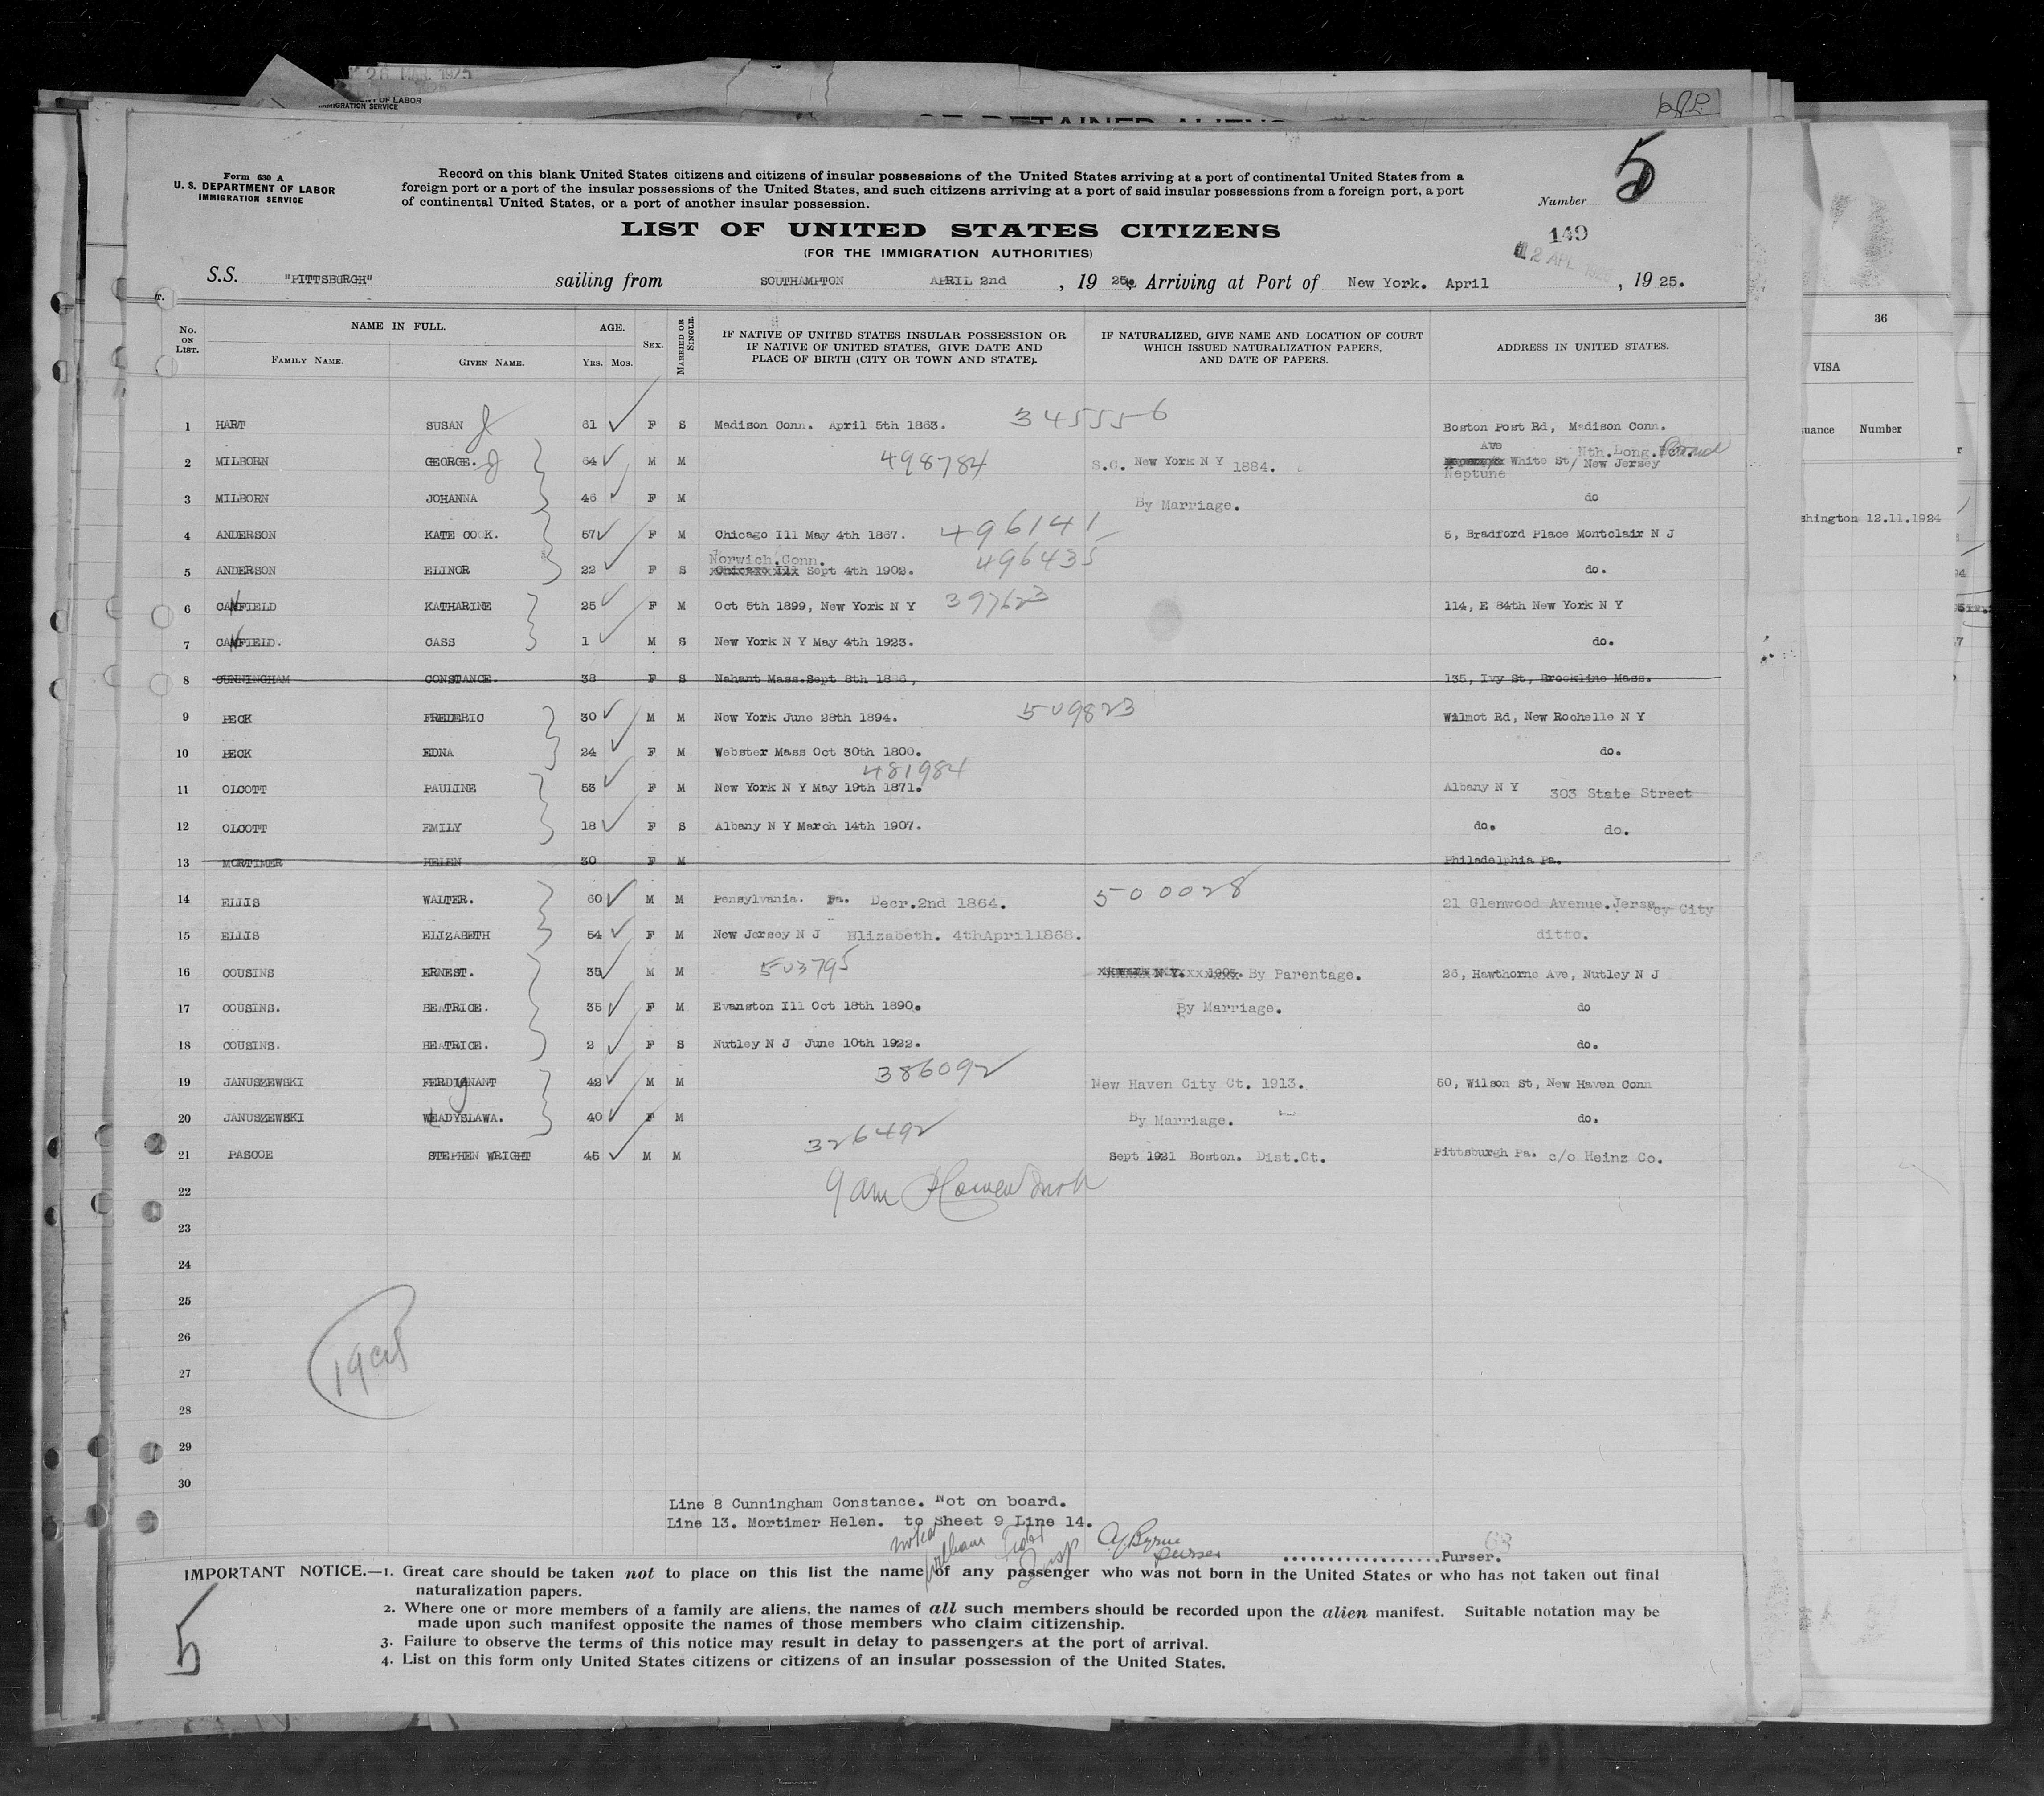 26 MAR. 1925
NT OF LABOR
IMMIGRATION SERVICE
Form 630 A
U. S. DEPARTMENT OF LABOR
IMMIGRATION SERVICE
Record on this blank United States citizens and citizens of insular possessions of the United States arriving at a port of continental United States from a
foreign port or a port of the insular possessions of the United States, and such citizens arriving at a port of said insular possessions from a foreign port, a port
of continental United States, or a port of another insular possession.
Number 5
LIST OF UNITED STATES CITIZENS
149
(FOR THE IMMIGRATION AUTHORITIES)
12 APL 1925
S.S. "PITTSBURGH" sailing from SOUTHAMPTON APRIL 2nd , 1925. Arriving at Port of New York. April , 1925.
No. ON LIST. NAME IN FULL. FAMILY NAME. GIVEN NAME. AGE. YRS. MOS. SEX. MARRIED OR SINGLE. IF NATIVE OF UNITED STATES INSULAR POSSESSION OR IF NATIVE OF UNITED STATES, GIVE DATE AND PLACE OF BIRTH (CITY OR TOWN AND STATE). IF NATURALIZED, GIVE NAME AND LOCATION OF COURT WHICH ISSUED NATURALIZATION PAPERS, AND DATE OF PAPERS. ADDRESS IN UNITED STATES.
1 HART SUSAN 61 F S Madison Conn. April 5th 1863. 345556 Boston Post Rd, Madison Conn.
2 MILBORN GEORGE. 64 M M 498784 S.C. New York N Y 1884. Ave White St/ Nth.Long.Brand New Jersey
Neptune
3 MILBORN JOHANNA 46 F M By Marriage. do
4 ANDERSON KATE COOK. 57 F M Chicago Ill May 4th 1867. 496141 5, Bradford Place Montclair N J
Norwich.Conn.
5 ANDERSON ELINOR 22 F S Chicago Ill Sept 4th 1902. 496435 do.
6 CANFIELD KATHARINE 25 F M Oct 5th 1899, New York N Y 397623 114, E 84th New York N Y
7 CANFIELD. CASS 1 M S New York N Y May 4th 1923. do.
8 CUNNINGHAM CONSTANCE. 38 F S Nahant Mass.Sept 8th 1886, 135, Ivy St, Brookline Mass.
9 PECK FREDERIC 30 M M New York June 28th 1894. 509823 Wilmot Rd, New Rochelle N Y
10 PECK EDNA 24 F M Webster Mass Oct 30th 1800. do.
481984
11 OLCOTT PAULINE 53 F M New York N Y May 19th 1871. Albany N Y 303 State Street
12 OLCOTT EMILY 18 F S Albany N Y March 14th 1907. do. do.
13 MORTIMER HELEN 30 F M Philadelphia Pa.
14 ELLIS WALTER. 60 M M Pensylvania. Pa. Decr.2nd 1864. 500028 21 Glenwood Avenue.Jersey City
15 ELLIS ELIZABETH 54 F M New Jersey N J Elizabeth. 4thApril1868. ditto.
16 COUSINS ERNEST. 35 M M 503795 Newark N Y. 1905. By Parentage. 26, Hawthorne Ave, Nutley N J
17 COUSINS. BEATRICE. 35 F M Evanston Ill Oct 18th 1890. By Marriage. do
18 COUSINS. BEATRICE. 2 F S Nutley N J June 10th 1922. do.
19 JANUSZEWSKI FERDIGNANT 42 M M 386092 New Haven City Ct. 1913. 50, Wilson St, New Haven Conn
20 JANUSZEWSKI WLADYSLAWA. 40 F M By Marriage. do.
21 PASCOE STEPHEN WRIGHT 45 M M 326492 Sept 1921 Boston. Dist.Ct. Pittsburgh Pa. c/o Heinz Co.
22 9 am
23
24
25
26
27
28
29
30
Line 8 Cunningham Constance. Not on board.
Line 13. Mortimer Helen. to Sheet 9 Line 14.
noted Insp Byrne Purser
Purser.
63
IMPORTANT NOTICE.—1. Great care should be taken not to place on this list the name of any passenger who was not born in the United States or who has not taken out final
naturalization papers.
2. Where one or more members of a family are aliens, the names of all such members should be recorded upon the alien manifest. Suitable notation may be
made upon such manifest opposite the names of those members who claim citizenship.
3. Failure to observe the terms of this notice may result in delay to passengers at the port of arrival.
4. List on this form only United States citizens or citizens of an insular possession of the United States.
5
36
VISA
uance Number
shington 12.11.1924